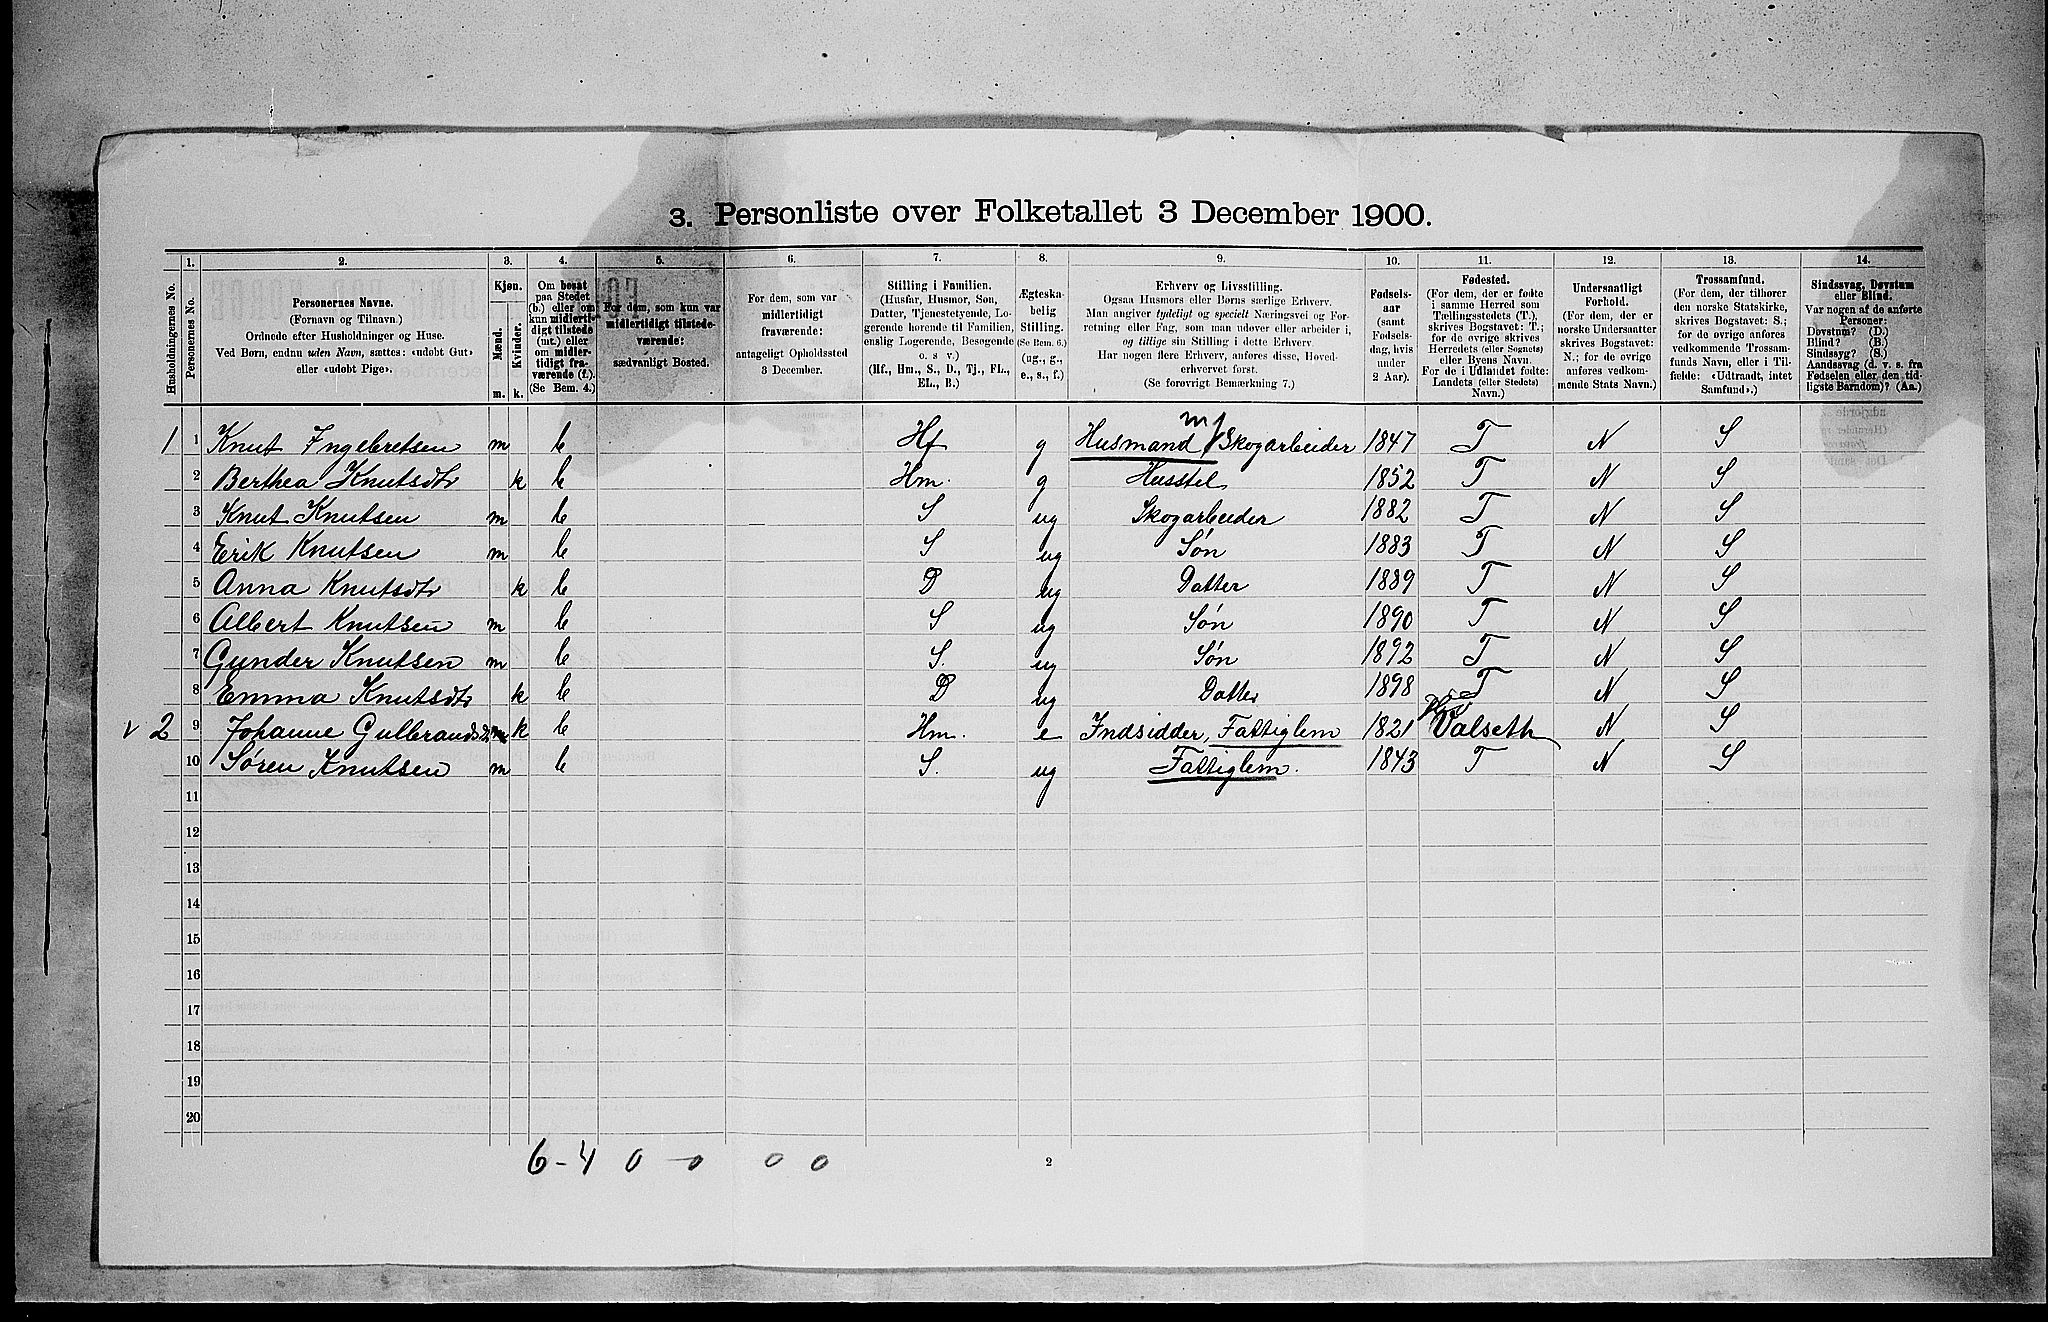 3. Personliste over Folketallet 3 December 1900.
1. 2. 3. 4. 5. 6. 7. 8. 9. 10. 11. 12. 13. 14.
Husholdningernes No.
Personernes No.
Personernes Navne.
(Fornavn og Tilnavn.)
Ordnede efter Husholdninger og Huse.
Ved Børn, endnu uden Navn, sættes: «udøbt Gut»
eller «udøbt Pige».
Kjøn.
Mænd.
Kvinder.
m. k.
Om bosat
paa Stedet
(b.) eller om
kun midlerti-
digt tilstede
(mt.) eller
om midler-
tidigt fra-
værende (f.).
(Se Bem. 4.)
For dem, som kun var
midlertidigt tilstede-
værende:
sædvanligt Bosted.
For dem, som var
midlertidigt
fraværende:
antageligt Opholdssted
3 December.
Stilling i Familien.
(Husfar, Husmor, Søn,
Datter, Tjenestetyende, Lo-
gerende hørende til Familien,
enslig Logerende, Besøgende
o. s v.)
(Hf., Hm., S., D., Tj., FL.,
EL., B.)
Ægteska-
belig
Stilling.
(Se Bem. 6.)
(ug., g.,
e., s., f.)
Erhverv og Livsstilling.
Ogsaa Husmors eller Børns særlige Erhverv.
Man angiver tydeligt og specielt Næringsvei og For-
retning eller Fag, som man udøver eller arbeider i,
og tillige sin Stilling i dette Erhverv.
Har nogen flere Erhverv, anføres disse, Hoved-
erhvervet først.
(Se forøvrigt Bemærkning 7.)
Fødsels-
aar
(samt
Fødsels-
dag, hvis
under
2 Aar).
Fødested.
(For dem, der er fødte
i samme Herred som
Tællingsstedets (T.),
skrives Bogstavet: T.;
for de øvrige skrives
Herredets (eller Sognets)
eller Byens Navn.
For de i Udlandet fødte:
Landets (eller Stedets)
Navn.)
Undersaatligt
Forhold.
(For dem, der er
norske Undersaatter
skrives Bogstavet:
N.; for de øvrige
anføres vedkom-
mende Stats Navn.)
Trossamfund.
(For dem, der tilhører
den norske Statskirke,
skrives Bogstavet: S.;
for de øvrige anføres
vedkommende Trossam-
funds Navn, eller i Til-
fælde: «Udtraadt, intet
Samfund».)
Sindssvag, Døvstum
eller Blind.
Var nogen af de anførte
Personer:
Døvstum? (D.)
Blind? (B.)
Sindssyg? (S.)
Aandssvag (d. v. s. fra
Fødselen eller den tid-
ligste Barndom)? (Aa.)
1 1 Knut Ingebretsen m b Hf g Husmand m/ Skogarbeider 1847 T N S
2 Berthea Knutsdtr k b Hm. g Husstel 1852 T N S
3 Knut Knutsen m b S ug Skogarbeider 1882 T N S
4 Erik Knutsen m b S ug Søn 1883 T N S
5 Anna Knutsdtr k b D ug Datter 1889 T N S
6 Albert Knutsen m b S ug Søn 1890 T N S
7 Gunder Knutsen m b S. ug Søn 1892 T N S
8 Emma Knutsdtr k b D ug Datter 1898 T N S
v 2 9 Johanne Gulbrandsd. k b Hm. e Indsidder, Fattiglem 1821 Valseth N S
10 Søren Knutsen m b S. ug Fattiglem. 1843 T N S
11
12
13
14
15
16
17
18
19
20
6-4 0 - 0 0 0
2